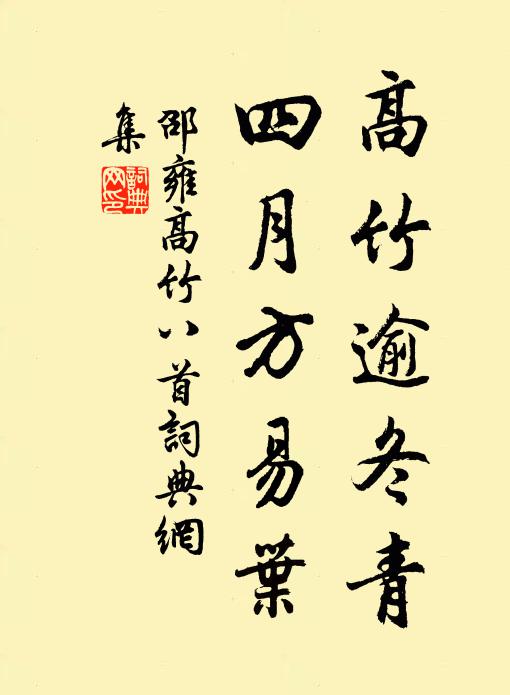 高竹逾冬青
四月方易葉
邵雍高竹八首詞典網
集
詞典
网印